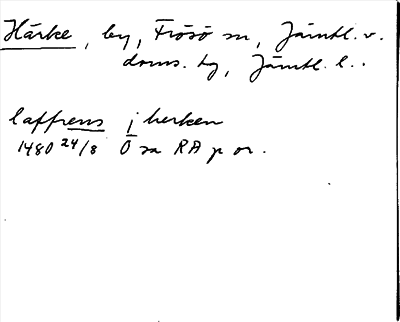 Härke, by, Frösö sn, Jämtl. v.
doms. hg, Jämtl. l..
laffrens i herken
1480 24/8 Ö sa RA p or.